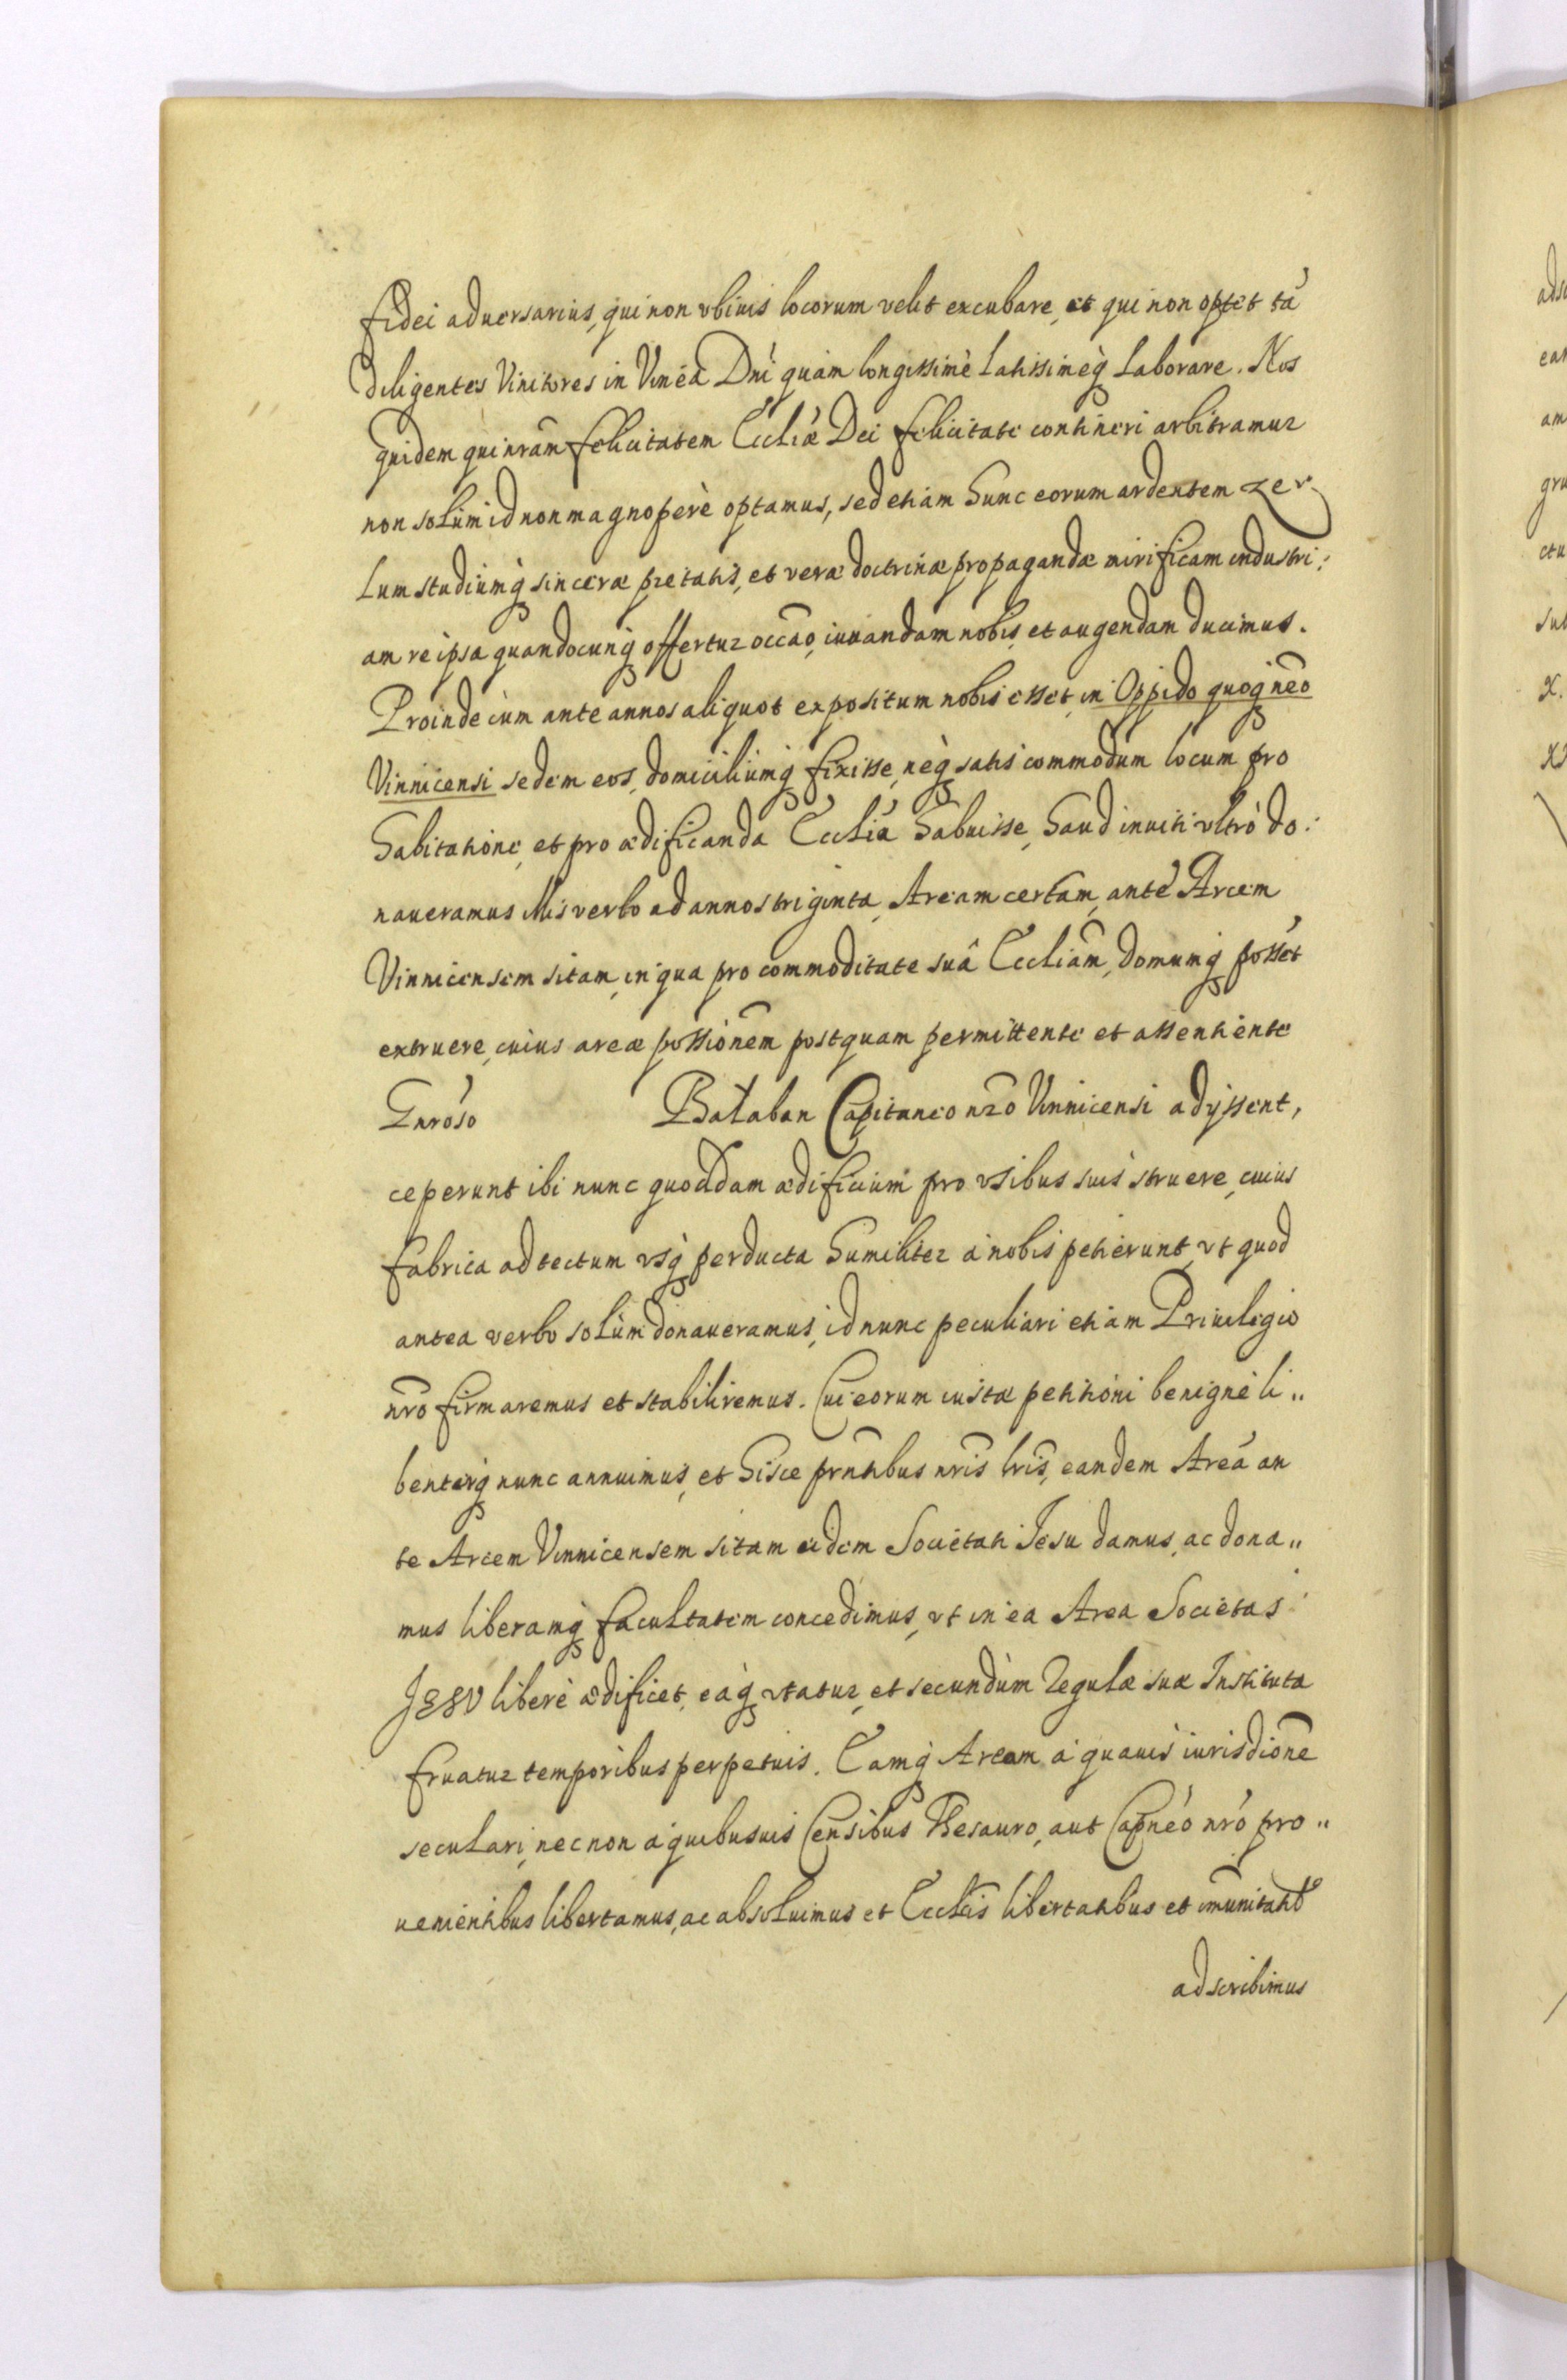 fidei aduersarius, qui non vbiuis locorum velit excubare, et qui non optet tã
diligentes Vinitores in Vineã Dnĩ quàm longissimè Latissimeq́ Laborare. Nos
quidem qui nrãm felicitatem Eccliæ Dei felicitate contineri arbitramur
non solùm id non magnoperè optamus, sed etiam hunc eorum ardentem ze-
lum studiumq́ sinceræ pietatis, et veræ doctrinæ propagandæ mirificam industri:
am reipsa quandocunq́ offertur occão, iuuandam nobis, et augendam ducimus.
Proinde cùm ante annos aliquot expositum nobis esset, in Oppido quoq́ nrõ
Vinnicensi sedem eos, domiciliumq́ fixisse, neq́ satis commodum locum pro
habitatione, et pro ædificanda Ecclia habuisse, haud inuiti vltrò do:
naueramus illis verbo ad annos triginta, Aream certam, ante Arcem
Vinnicensem sitam, in qua pro commoditate suâ Eccliam, domumq́ posset
extruere, cuius areæ possionem postquam permittente et assentiente
Gnroso Bałaban Capitaneo nro Vinnicensi adijssent,
ceperunt ibi nunc quoddam ædificium pro vsibus suis struere, cuius
fabrica ad tectum vsq́ perducta humiliter a nobis petierunt, vt quod
antea verbo solùm donaueramus, id nunc peculiari etiam Priuilegio
nrõ firmaremus et stabiliremus. Cui eorum iustæ petitioni benignè li„
benterq́ nunc annuimus, et hisce prñtibus nris lris, eandem Areã an
te Arcem Vinnicensem sitam eidem Societati Iesu damus, ac dona„
mus liberamq́ facultatem concedimus, vt in ea Area Societas
JESV liberè ædificet, eaq́ vtatur, et secundùm Regulæ suæ Instituta
fruatur temporibus perpetuis. Eamq́ Aream a quauis iurisdione
seculari, nec non a quibusuis Censibus Thesauro, aut Capneo nro pro„
uenientibus libertamus, ac absoluimus et Ecclcis libertatibus et imunitatib
adscribimus